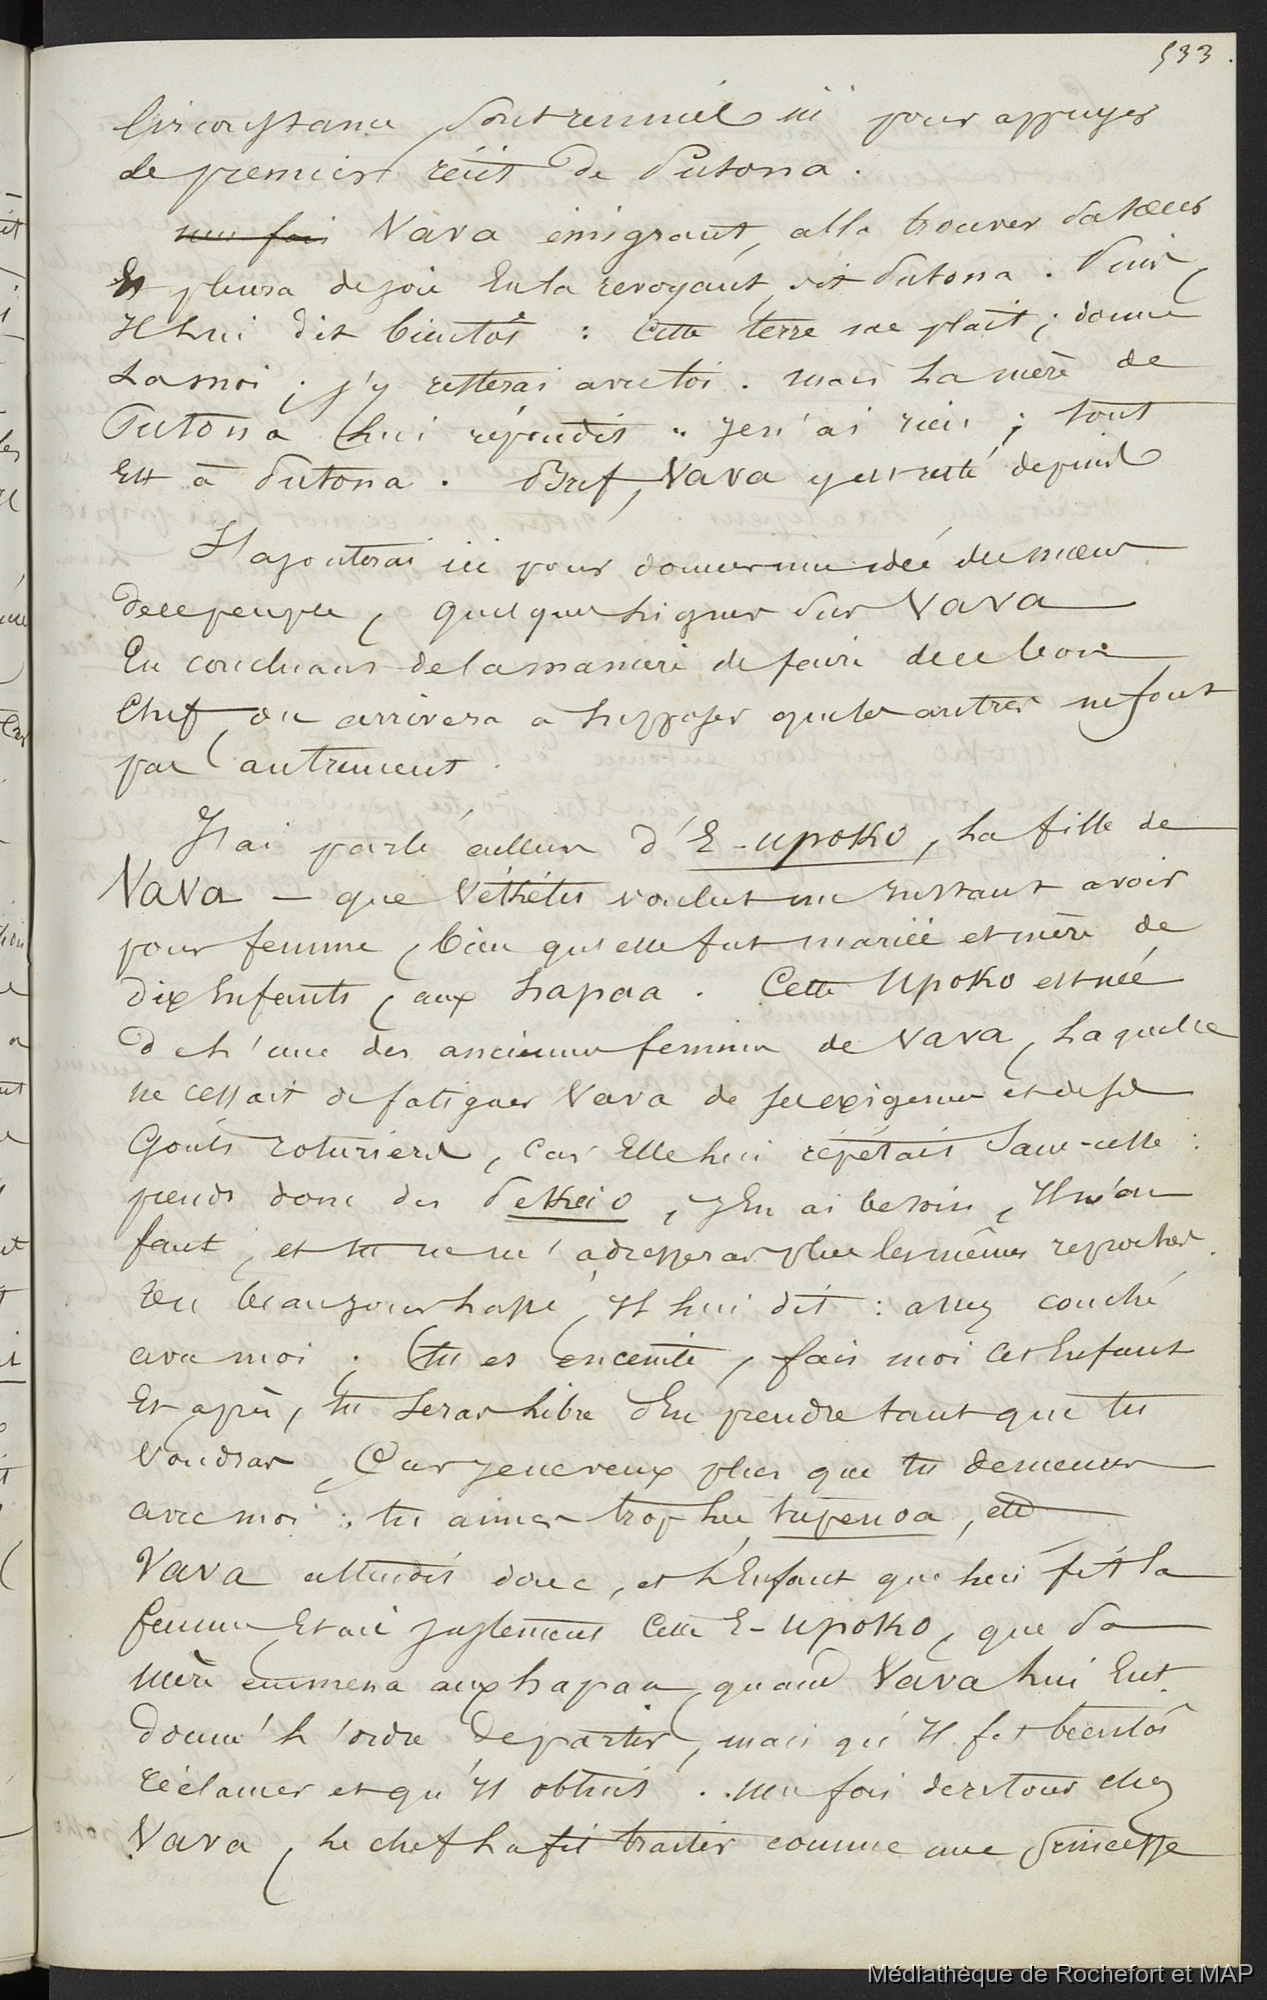 533.
Circonstance sont réunies ici pour appuyer
le premier récit de Putona.
une fois Vava émigrant, alla trouver sa sœur
Et pleura de joie En la revoyant, dit Putona. Puis,
Il lui dit bientôt : Cette terre me plait ; donne
La moi ; j'y resterai avec toi. mais La mère de
Putona Lui répondit : Je n'ai rien ; tout
Est à Putona. Bref, Vava y est resté depuis
J'ajouterai ici pour donner une idée des mœurs
de ce peuple, quelques Lignes sur Vava
En concluant de la manière de faire de ce bon
Chef, on arrivera a Supposer que les autres ne font
pas autrement.
J'ai parlé ailleurs d'E-upoko, La fille de
Vava — que Véhétu voulut un Instant avoir
pour femme, bien qu'elle fut mariée et mère de
dix Enfants, aux hapaa. Cette Upoko est née
de L'une des anciennes femmes de Vava, Laquelle
ne cessait de fatiguer Vava de ses exigences et de ses
Gouts roturiers, Car Elle Lui répétait Sans-cesse :
prends donc des Pekeio, J'En ai besoin, Il m'en
faut, et tu ne m'adresseras plus les mêmes reproches.
Un beau jour Lassé, Il Lui dit : assez couché
avec moi ; tu es enceinte, fais moi Cet Enfant
Et après, tu Seras Libre d'En prendre tant que tu
Voudras, Car je ne veux plus que tu demeures
avec moi : tu aimes trop Les tupenoa, etc
Vava attendit donc, et L'Enfant que Lui fit La
femme Etait justement Cette E-upoko, que Sa
mère emmena aux hapaa, quand Vava Lui Eut
donné L'ordre de partir, mais qu'Il fit bientôt
réclamer et qu'Il obtint. Une fois de retour chez
Vava, Le chef La fit traiter comme une Princesse
Médiathèque de Rochefort et MAP